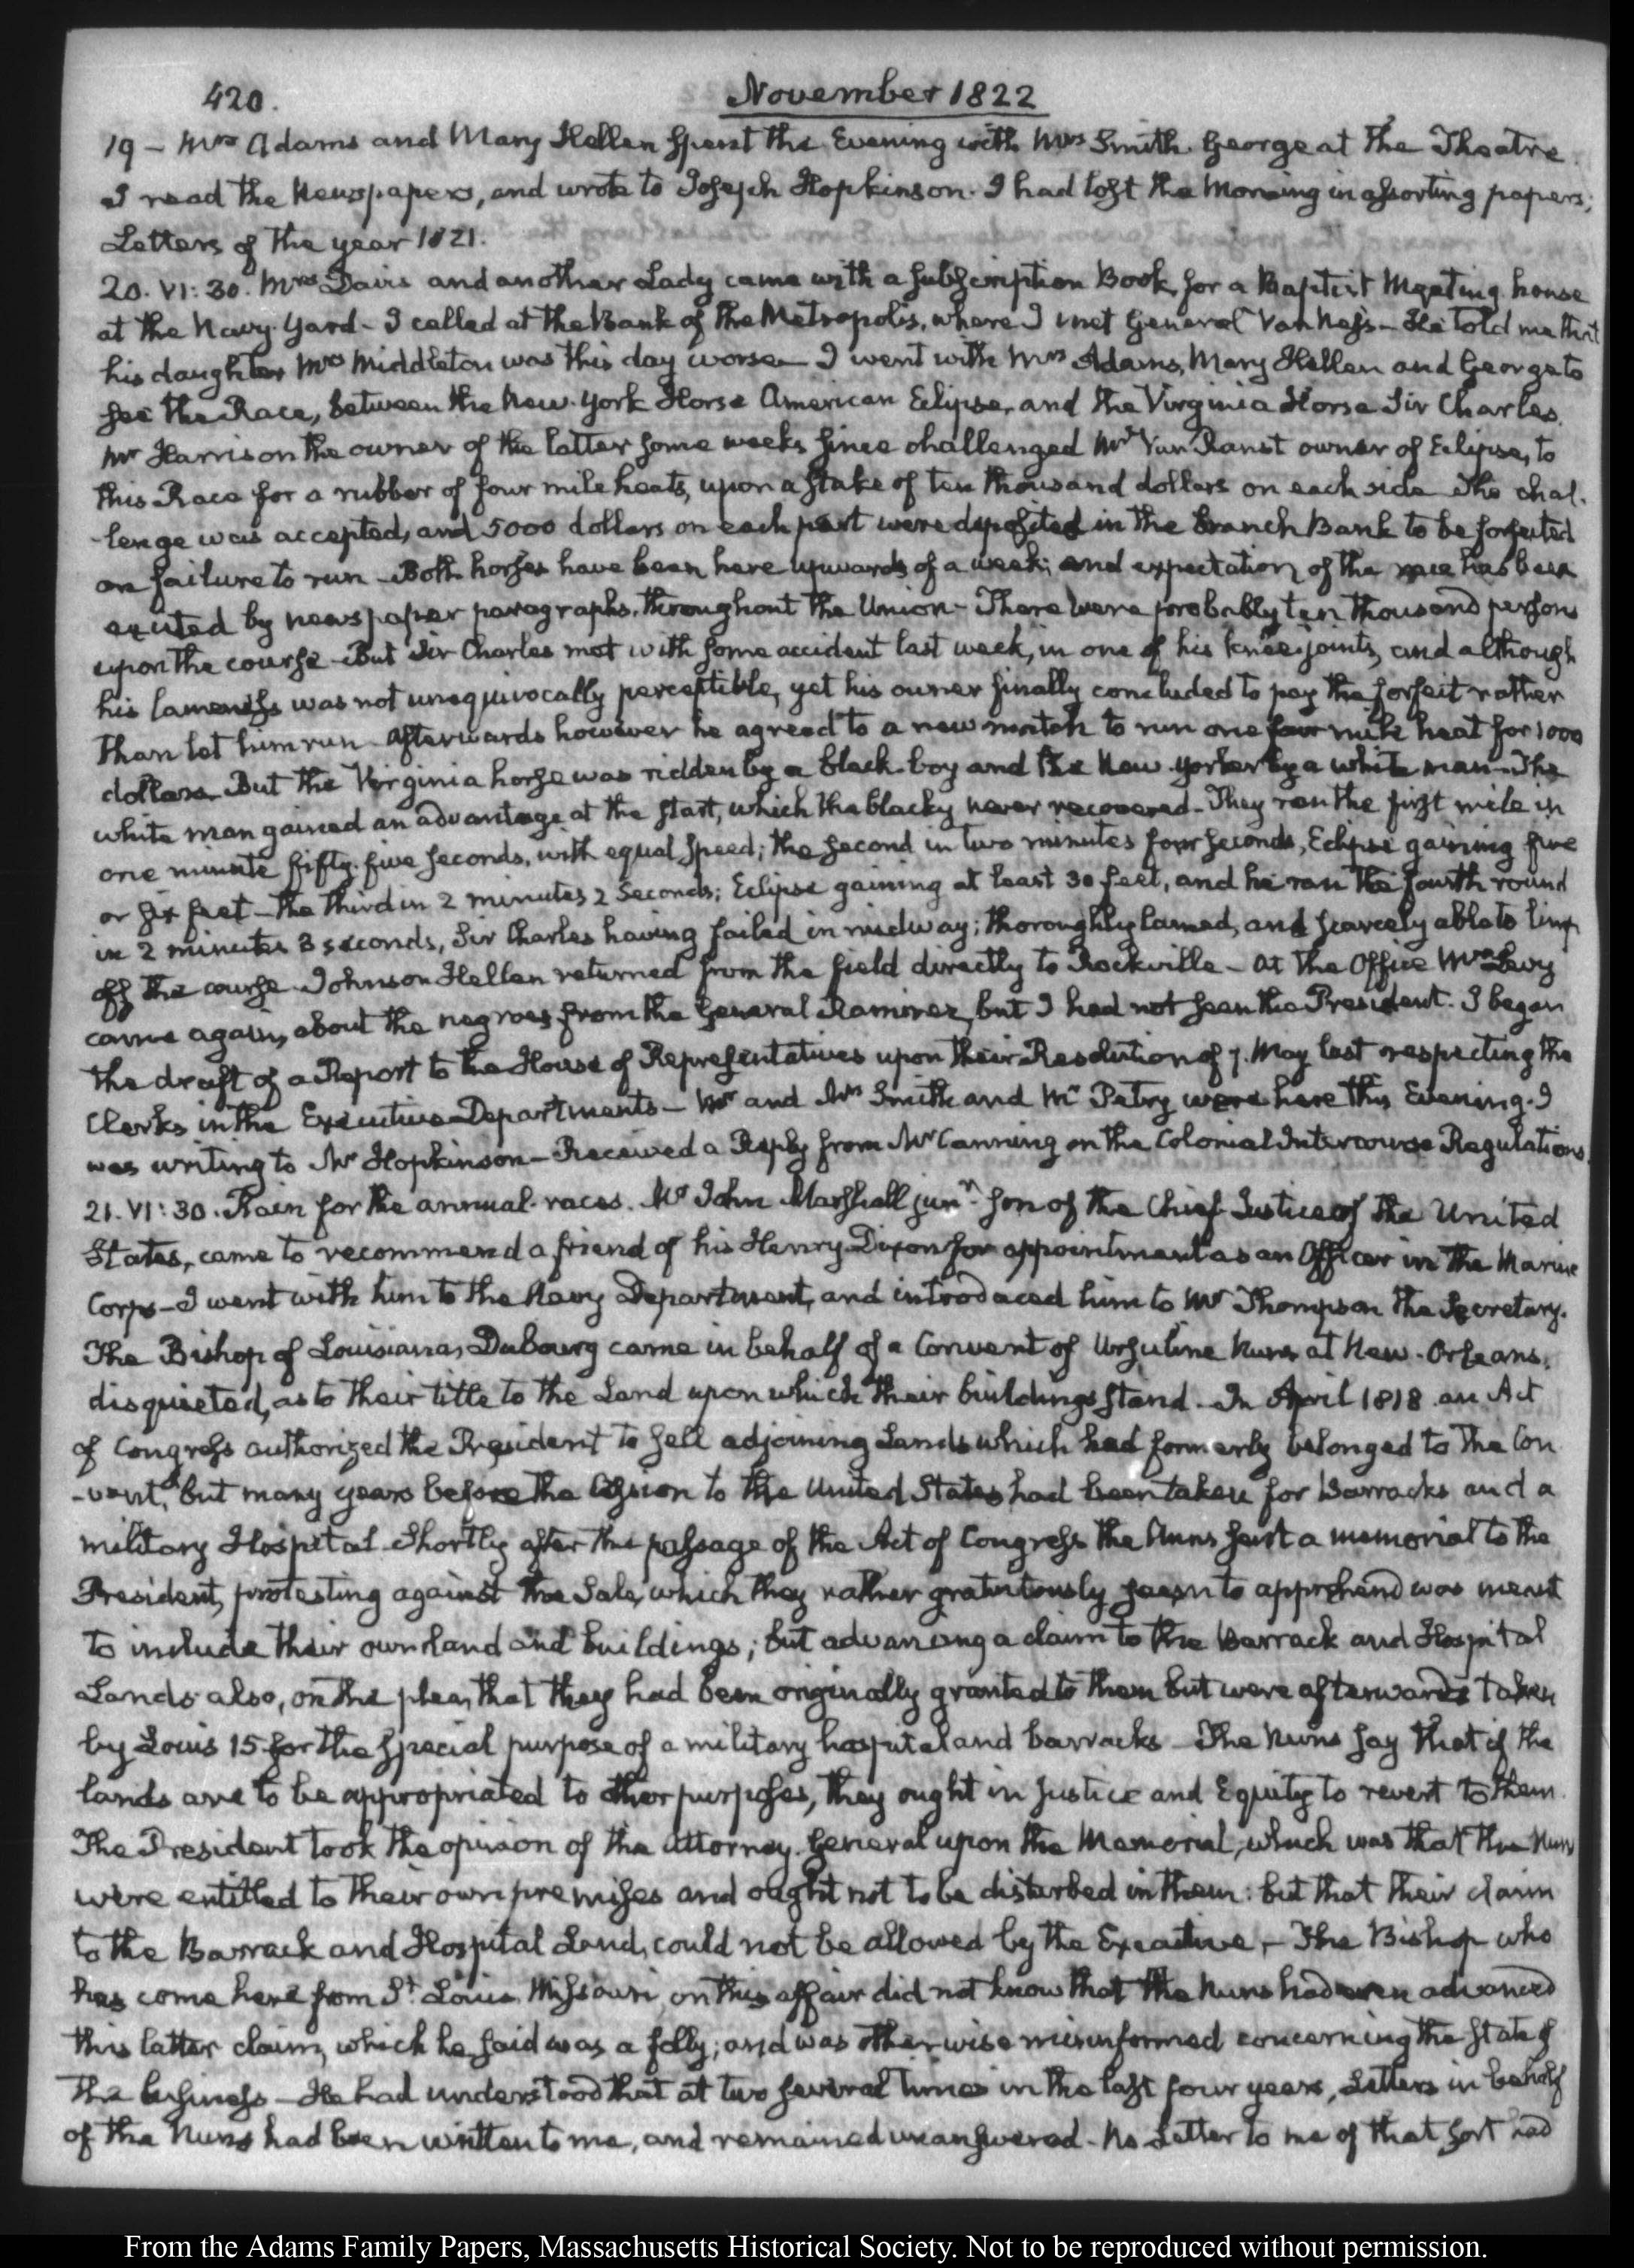 420.
November 1822
19 – Mrs Adams and Mary Hellen spent the Evening with Mrs Smith. George at the Theatre.
I read the Newspapers, and wrote to Joseph Hopkinson. I had lost the Morning in assorting papers;
Letters of the year 1821.
20. VI: 30. Mrs Davis and another Lady came with a subscription Book, for a Baptist Meeting house
at the Navy-Yard – I called at the Bank of the Metropolis, where I met General Van Ness – He told me that
his daughter Mrs Middleton was this day worse – I went with Mrs Adams, Mary Hellen and George to
see the Race, between the New-York Horse American Eclipse, and the Virginia Horse Sir Charles.
Mr Harrison the owner of the latter some weeks since challenged Mr Van Ranst owner of Eclipse, to
this Race for a rubber of four mile heats, upon a stake of ten thousand dollars on each side. The chal-
-lenge was accepted, and 5000 dollars on each part were deposited in the Branch Bank to be forfeited
on failure to run – Both horses have been here upwards of a week; and expectation of the race has been
excited by newspaper paragraphs, throughout the Union – There were probably ten thousand persons
upon the course – But Sir Charles met with some accident last week, in one of his knee-joints, and although
his lameness was not unequivocally perceptible, yet his owner finally concluded to pay the forfeit rather
than let him run – Afterwards however he agreed to a new match to run one four mile heat for 1000
dollars. But the Virginia horse was ridden by a black-boy and the New-Yorker by a white man – The
white man gained an advantage at the start, which the blacky never recovered – They ran the first mile in
one minute fifty-five seconds, with equal speed; the second in two minutes four seconds, Eclipse gaining five
or six feet – the third in 2 minutes 2 Seconds; Eclipse gaining at least 30 feet, and he ran the fourth round
in 2 minutes 3 seconds, Sir Charles having failed in midway; thoroughly lamed, and scarcely able to limp
off the course. Johnson Hellen returned from the field directly to Rockville – At the Office Mr Levy
came again, about the negroes from the General Ramirez, but I had not seen the President. I began
the draft of a Report to the House of Representatives upon their Resolution of 7. May last respecting the
Clerks in the Executive Departments – Mr and Mrs Smith and Mr Petry were here this Evening. I
was writing to Mr Hopkinson – Received a Reply from Mr Canning on the Colonial Intercourse Regulations.
21. VI: 30. Rain for the annual races. Mr John Marshall junr. son of the Chief Justice of the United
States, came to recommend a friend of his Henry Dixon for appointment as an Officer in the Marine
Corps – I went with him to the Navy Department, and introduced him to Mr Thompson the Secretary.
The Bishop of Louisiana, Dubourg came in behalf of a Convent of Ursuline Nuns at New-Orleans,
disquieted, as to their title to the Land upon which their buildings stand – In April 1818 an Act
of Congress authorized the President to sell adjoining Lands which had formerly belonged to the Con
-vent, but many years before the Cession to the United States had been taken for Barracks and a
military Hospital. Shortly after the passage of the Act of Congress the Nuns sent a memorial to the
President, protesting against the Sale, which they rather gratuitously seem to apprehend was meant
to include their own land and buildings; but advancing a claim to the Barrack and Hospital
Lands also, on the plea, that they had been originally granted to them but were afterwards taken
by Louis 15 for the special purpose of a military hospital and barracks – The Nuns say that if the
lands are to be appropriated to other purposes, they ought in justice and Equity to revert to them.
The President took the opinion of the Attorney-General upon the Memorial, which was that the Nuns
were entitled to their own premises and ought not to be disturbed in them: but that their claim
to the Barrack and Hospital Land, could not be allowed by the Executive. – The Bishop who
has come here from St. Louis, Missouri, on this affair did not know that the Nuns had even advanced
this latter claim, which he said was a folly; and was otherwise misinformed concerning the state of
the business – He had understood that at two several times in the last four years, Letters in behalf
of the Nuns had been written to me, and remained unanswered – No Letter to me of that sort had
From the Adams Family Papers, Massachusetts Historical Society. Not to be reproduced without permission.